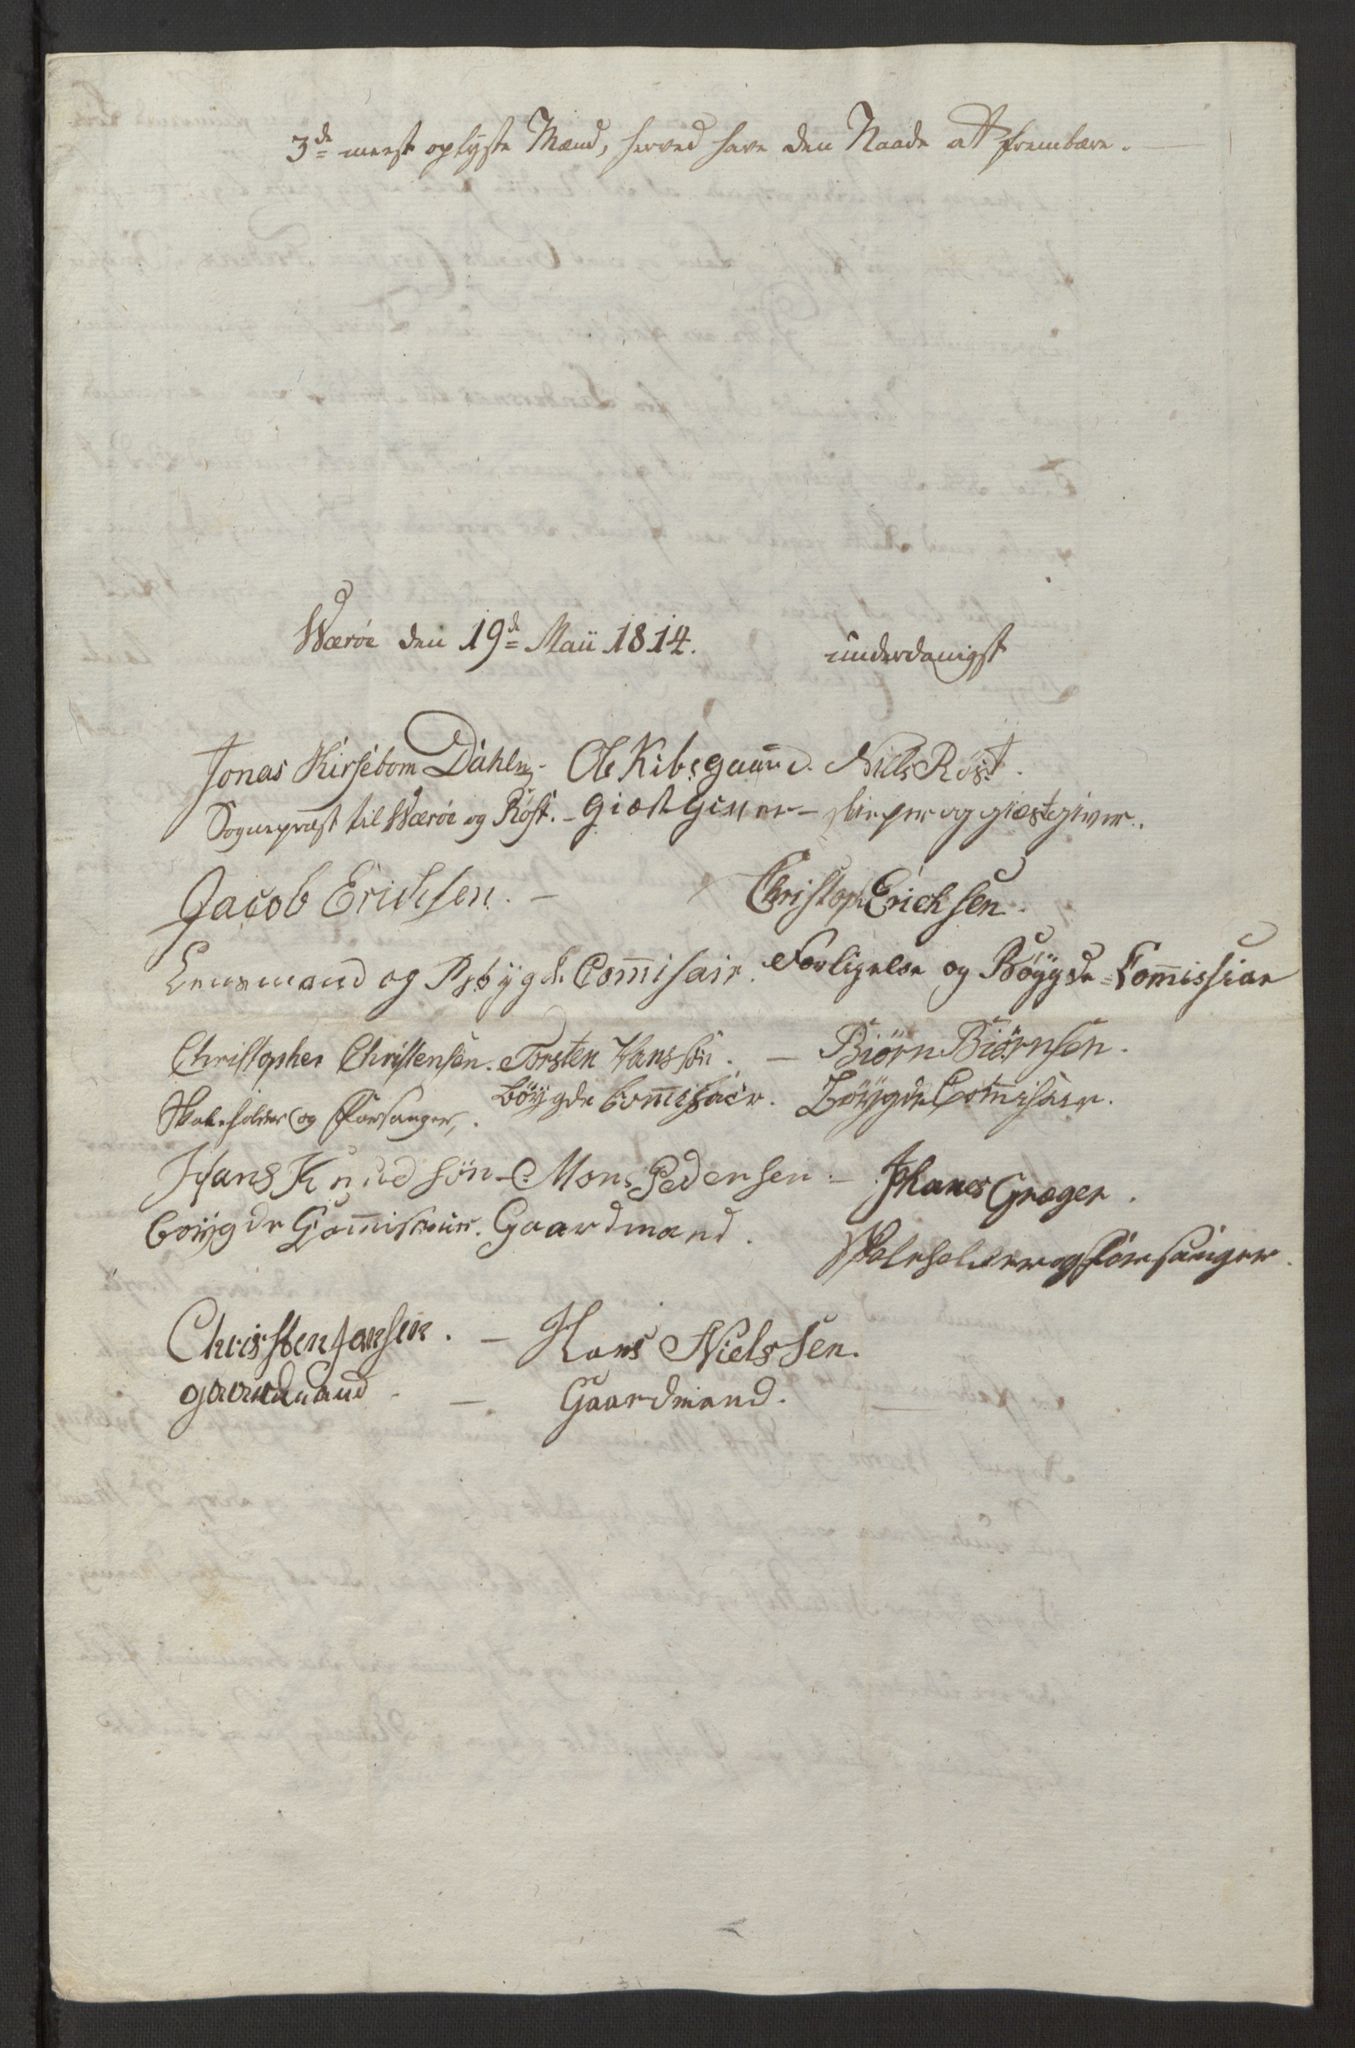 3de meest oplyste Mænd, herved have den Naade at frembære.
Wærøe den 19de Maii 1814.
underdanigst
Jonas Kirsebom Dahl Ole Kibsgaard. Niels Røst.
Sognepræst til Wærøe og Røst. - Giæstgiver - skipper og giæstgiver.
Jacob Erichsen. - Christoph Ericksen.
Lensmand og Bøygde Com̄isair. Forligelse og Bøygde-Com̄issiar
Christopher Christensen. Torsten Hanssøn. - Biørn Biørnsen.
Skoleholder og Forsanger, Bøygde Com̄isair. Bøygde Com̄isair.
Hans Knudsøn - Mons Pedersen - Johanes Græger.
Bøigde Com̄isair. Gaardmand.
Skoleholder og Forsanger.
Christen Jansen. - Hans Nielssen.
gaardmand - Gaardmand.